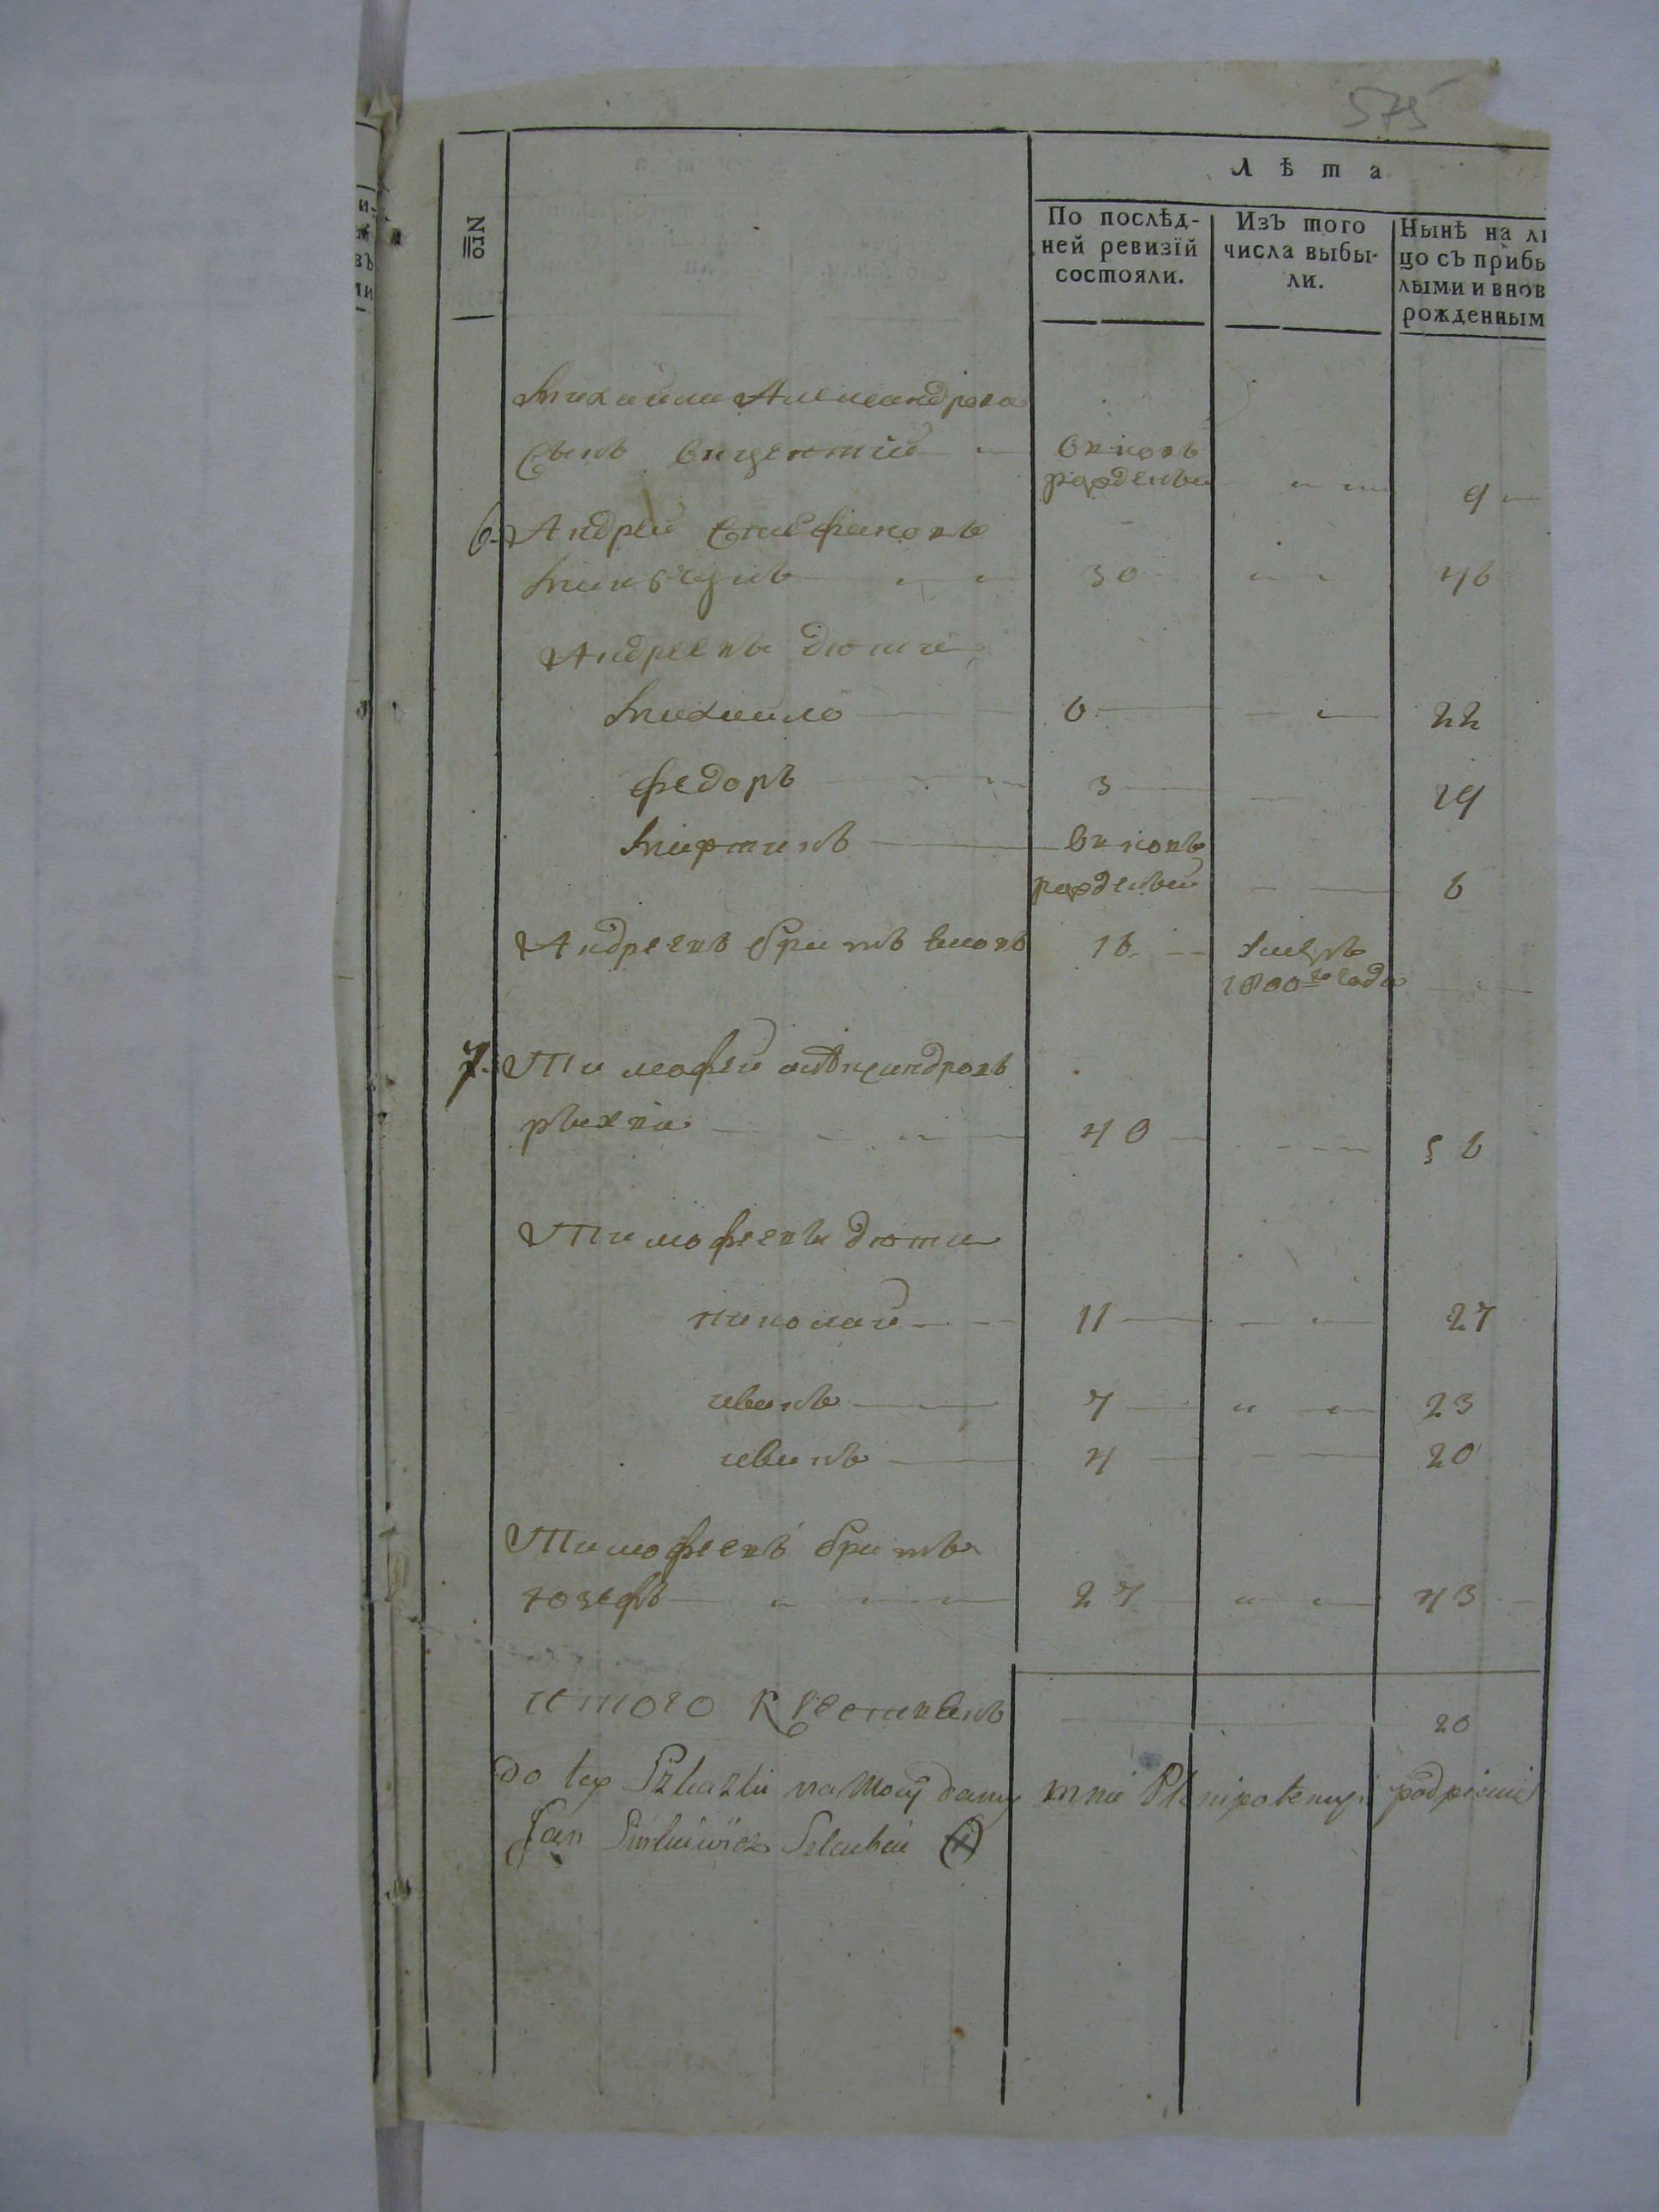 575
Nro
Лѣта
По послѣд-
ней ревизїй
состояли.
Изъ того
числа выбы-
ли.
Нынѣ на ли
цо съ прибы
лыми и внов
рожденным
Михаила Александрова
Сынъ Вицентий
вновь
рожденый
9
6. Андрей Стефановъ
30
46
Андреевы дѣти
Михайло 6 22
Федоръ 3 19
Мартинъ вновь
рожденый 6
Андреевъ братъ 16
1800го года
7. Тимофей Александровъ
40 56
Тимофеевы дѣти
николай 11 27
иванъ 7 23
иванъ 4 20
Тимофеевъ братъ
юзефъ 27 43
итого 20
do tey Skazki na Mocy daney mnie Plenipotencyi podpisuie
Jan